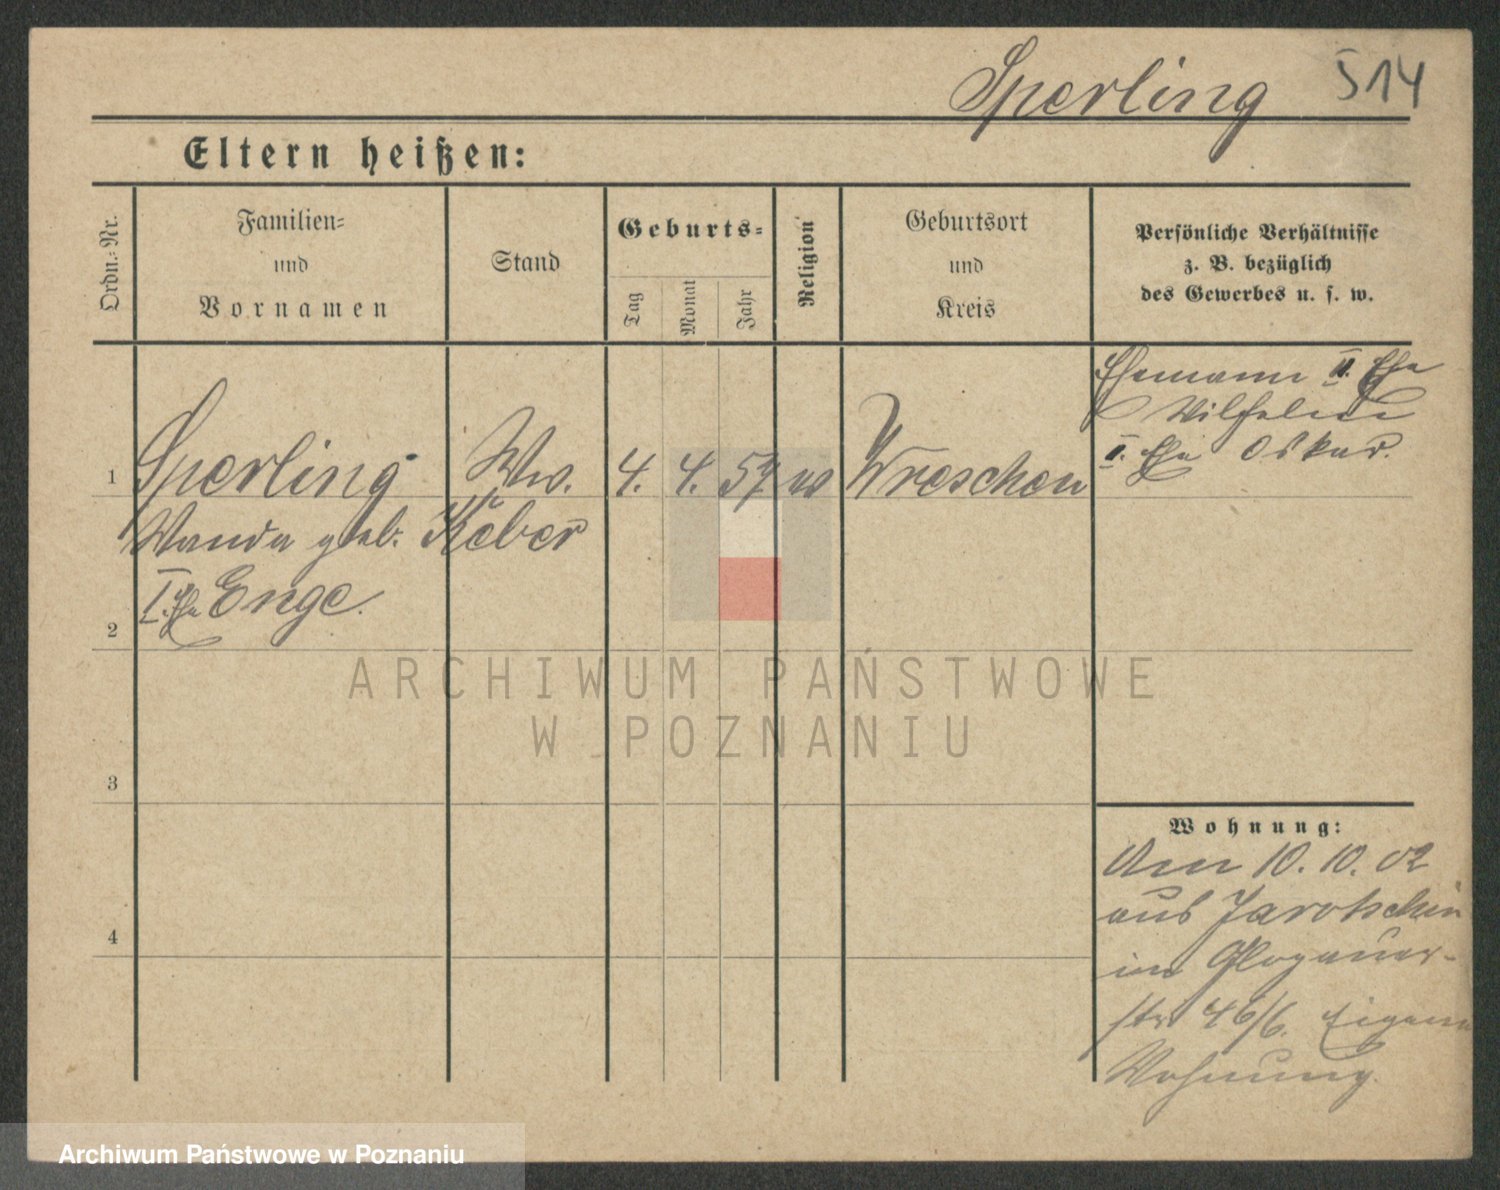 Sperling 514
Eltern heißen:
Ordn.-Nr.
Familien-
und
Vornamen
Stand
Geburts-
Tag
Monat
Jahr
Religion
Geburtsort
und
Kreis
Persönliche Verhältnisse
z. B. bezüglich
des Gewerbes u. s. w.
Ehemann II. Ehe
Wilhelm
I. Ehe Oskar.
1 Sperling Ww. 4. 4. 57 Wreschen
Wanda geb. Keber
I. Ehe Enge.
2
ARCHIWUM PAŃSTWOWE
W POZNANIU
3
Wohnung:
Den 10. 10. 02
aus Jarotschin
in Glogauer-
str 46/6. Eigene
Wohnung.
4
Archiwum Państwowe w Poznaniu